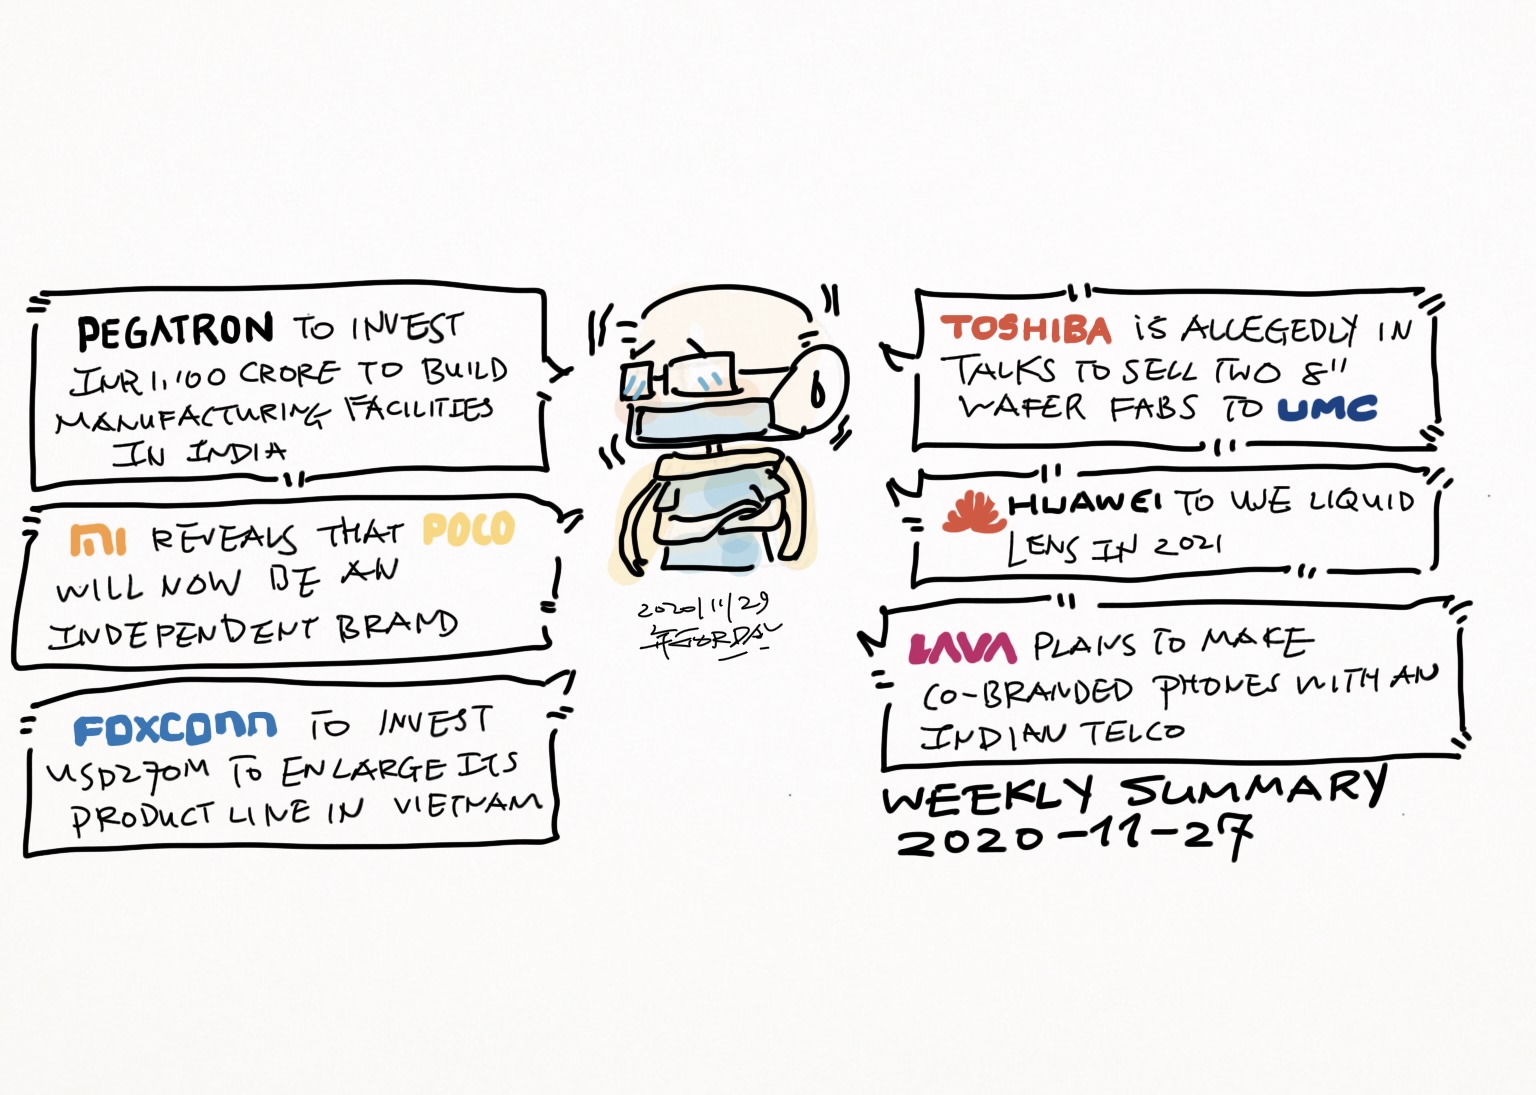 PEGATRON TO INVEST
INR1,100 CRORE TO BUILD
MANUFACTURING FACILITIES
IN INDIA
MI REVEALS THAT POCO
WILL NOW BE AN
INDEPENDENT BRAND
FOXCONN TO INVEST
USD270M TO ENLARGE ITS
PRODUCT LINE IN VIETNAM
2020/11/29
TOSHIBA IS ALLEGEDLY IN
TALKS TO SELL TWO 8"
WAFER FABS TO UMC
HUAWEI TO USE LIQUID
LENS IN 2021
LAVA PLANS TO MAKE
CO-BRANDED PHONES WITH AN
INDIAN TELCO
WEEKLY SUMMARY
2020-11-27